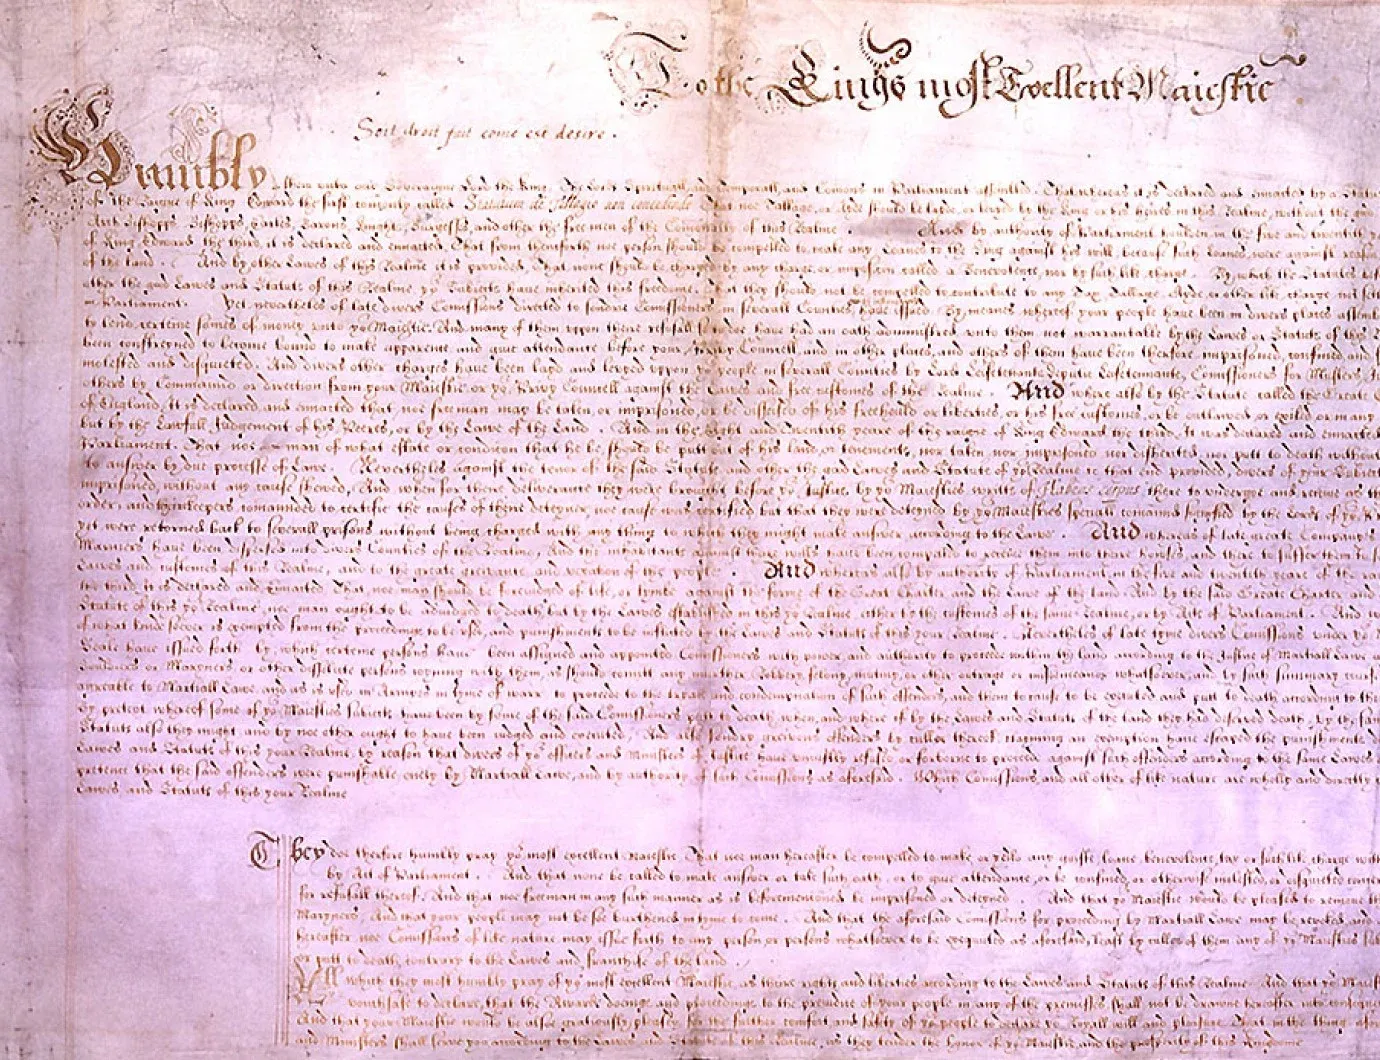 To the Kings most Excellent Maiestie
Soit droit fait come est desire.
Humbly shew unto our Soveraigne Lord the King, the Lords Spirituall and Temporall, and Comons in Parliament assembled, That whereas it is declared and enacted by a Statute
of the raigne of King Edward the first comonly called Statutum de Tallagio non concedendo That noe Tallage, or Ayde should be laide, or levyed by the King or his heires in this Realme, without the good
Bishopps, Earles, Barons, Knights, Burgesses, and other the free men of the Cominalty of this Realme. And by authority of Parliament houlden in the five and twentith
of King Edward the third, it is declared and enacted, That from thenceforth noe person should be compelled to make any Loanes to the King against his will, because such Loanes were against reason
of the land. And by other Lawes of this Realme it is provided, That none should be charged by any charge, or imposicion called a Benevolence, nor by such like charge. By which the Statutes
other the good Lawes and Statuts of this Realme, yor Subiects have inherited this freedome, That they should not be compelled to contribute to any Tax, Tallage, Ayde, or other like charge not sett
in Parliament. Yet nevertheles of late divers Comissions directed to sundrie Comissioners in severall Counties have issued. By meanes whereof your people have been in divers places
to lend certeine somes of money unto yor Maiestie. And many of them uppon there refusall so to doe have had an oath administred unto them not warrantable by the Lawes or Statuts of this
been constreyned to become bound to make apparance and give attendance before your Privy Councell, and in other places, and others of them have been therfore imprisoned, confined and
molested and disquieted. And divers other charges have been laid and levyed uppon yor people in severall Counties by Lord Lieftenants, Deputie Lieftenants, Comissioners for Musters,
others by Commaund or direction from your Maiestie or yor Privy Councell against the Lawes and free customes of the Realme. And where also by the Statute called the Great
of England, It is declared and enacted that noe freeman may be taken, or imprisoned, or be disseised of his freehould or liberties, or his free customes, or be outlawed, or exiled or in any
but by the Lawfull Judgement of his Peeres, or by the Lawe of the Land. And in the eight and twentith yeare of the raigne of King Edward the third, It was declared and enacted
Parliament. That noe man of what estate or condition that he be, should be putt out of his land, or tenements, nor taken nor imprisoned nor disherited, nor putt to death without
to answer by due processe of Lawe. Nevertheles against the tenor of the said Statuts, and other the good Lawes and Statuts of yor Realme to that end provided, divers of yor Subiects
imprisoned, without any cause shewed, And when for there deliverance they were brought before yor Justices, by yor Maiesties writts of Habeas Corpus there to undergoe and receive as the
order, and their keepers comaunded to certifie the causes of there deteyner, noe cause was certified but that they were deteyned by yor Maiesties speciall comaund signifyed by the Lords of yor
yet were retorned back to severall prisons without being charged with any thing to which they might make answer according to the Lawe. And whereas of late great Companys
Mariners have been dispersed into divers Counties of the Realme, And the inhabitants against there wills have been compelled to receive them into there houses, and there to suffer them
Lawes and customes of this Realme, and to the great greivance and vexation of the people. And whereas also by authority of Parliament, in the five and twentith yeare of the
the third, it is declared and Enacted, That noe man should be forejudged of life, or lymbe against the forme of the Great Charter and the Lawe of the land. And by the said Great Charter and
Statuts of this yor Realme, noe man ought to be adiudged to death but by the Lawes established in this yor Realme, either by the customes of the same Realme, or by Acts of Parliament.
of what kinde soever is exempted from the proceedings to be used, and punishments to be inflicted by the Lawes and Statuts of this your Realme. Nevertheles of late tyme divers Comissions under yor
Seale have issued forth by which certeine persons have been assigned and appointed Comissioners with power and authority to proceede within the land according to the Justice of Martiall Lawe
Souldiers or Marryners or other dissolute persons ioyning with them, as should comitt any murther, Robbery, felony, mutiny, or other outrage or misdemeanor whatsoever, and by such summary course
agreeable to Martiall Lawe, and as is used in Armies in tyme of warr to proceede to the tryall and condemnation of such offenders, and them to cause to be executed and putt to death according to the
By pretext whereof some of yor Maiesties Subiects have been by some of the said Comissioners putt to death, when, and where if by the Lawes and Statuts of the land they had deserved death, by the same
Statuts also they might, and by noe other ought to have been iudged and executed. And also sundry greivous offenders by cullor thereof, clayming an exemption have escaped the punishments
Lawes and Statuts of this your Realme, by reason that divers of yor officers and Ministers of Justice have uniustly refused or forborne to proceede against such offenders according to the same Lawes
pretence that the said offenders were punishable onely by Martiall Lawe, and by authority of such Comissions as aforesaid. Which Comissions, and all other of like nature are wholly and directly
Lawes and Statuts of this your Realme
They doe therfore humbly pray yor most excellent Maiestie, That noe man hereafter be compelled to make or yeild any guift, loane, benevolence, tax or such like charge
by Act of Parliament. And that none be called to make answer or take such oath, or to give attendance, or be confined, or otherwise molested, or disquieted
for refusall thereof. And that noe freeman in any such manner as is beforementioned be imprisoned or deteyned. And that yor Maiestie would be pleased to remove
Marryners, And that your people may not be soe burthened in tyme to come. And that the aforesaid Comissions for proceeding by Martiall Lawe may be revoked and
hereafter noe Comissions of like nature may issue forth to any person or persons whatsoever to be executed as aforesaid, least by cullor of them any of yor Maiesties
or putt to death contrary to the Lawes and franchise of the land.
All which they most humbly pray of yor most excellent Maiestie, as there rights and liberties according to the Lawes and Statuts of this Realme. And that yor
vouchsafe to declare, that the Awards, doeings, and proceedings to the preiudice of your people in any of the premisses shall not be drawne hereafter into
And that your Maiestie would be alsoe gratiously pleased for the further comfort and safety of yor people to declare yor Royall will and pleasure, That in the things
and Ministers shall serve you according to the Lawes and Statuts of this Realme, as they tender the honor of yor Maiestie and the prosperity of this Kingdome